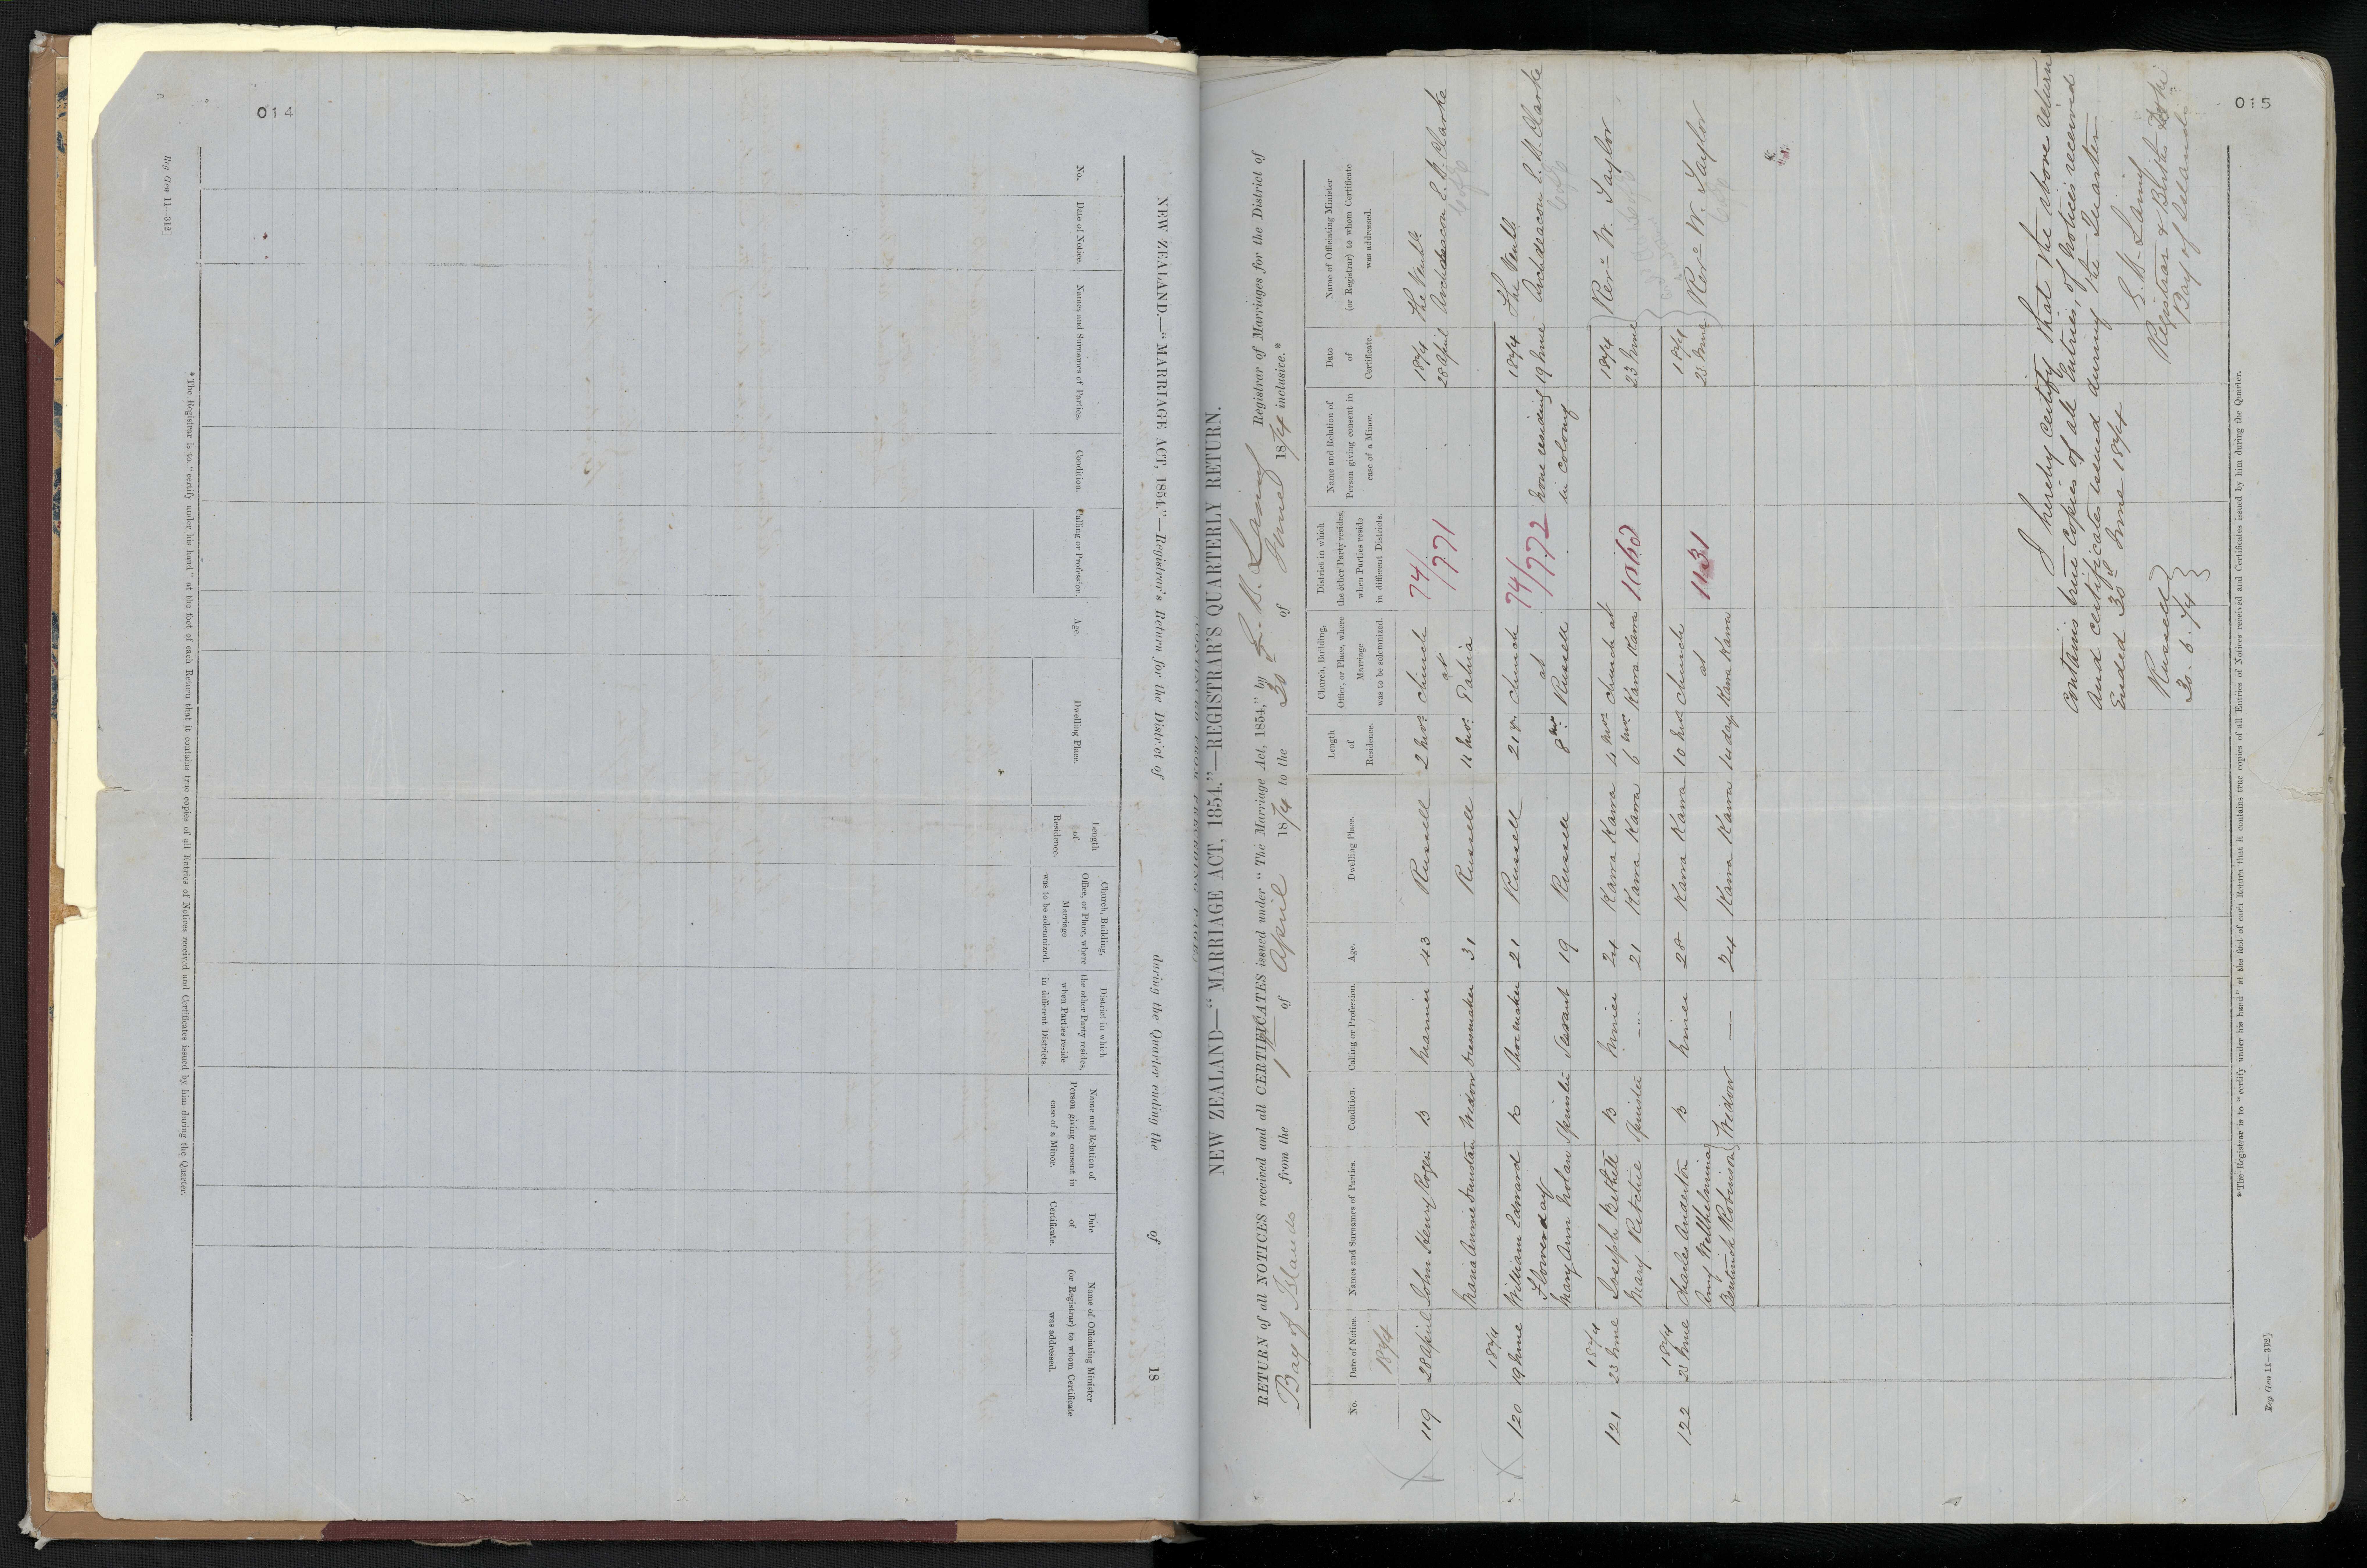 014
Reg Gen 11—312]
NEW ZEALAND.—"MARRIAGE ACT, 1854."—Registrar's Return for the District of during the Quarter ending the of 18
No.
Date of Notice.
Names and Surnames of Parties.
Condition.
Calling or Profession.
Age.
Dwelling Place.
Length
of
Residence.
Church, Building,
Office, or Place, where
Marriage
was to be solemnized.
District in which
the other Party resides,
when Parties reside
in different Districts.
Name and Relation of
Person giving consent in
case of a Minor.
Date
of
Certificate.
Name of Officiating Minister
(or Registrar) to whom Certificate
was addressed.
*The Registrar is to "certify under his hand" at the foot of each Return that it contains true copies of all Entries of Notices received and Certificates issued by him during the Quarter.
015
NEW ZEALAND—"MARRIAGE ACT, 1854."—REGISTRAR'S QUARTERLY RETURN.
RETURN of all NOTICES received and all CERTIFICATES issued under "The Marriage Act, 1854," by E. B. Laing Registrar of Marriages for the District of
Bay of Islands from the 1st of April 1874 to the 30th of June 1874 inclusive.*
No.
Date of Notice.
Names and Surnames of Parties.
Condition.
Calling or Profession.
Age.
Dwelling Place.
Length
of
Residence.
Church, Building,
Office, or Place, where
Marriage
was to be solemnized.
District in which
the other Party resides,
when Parties reside
in different Districts.
Name and Relation of
Person giving consent in
case of a Minor.
Date
of
Certificate.
Name of Officiating Minister
(or Registrar) to whom Certificate
was addressed.
1874 1874 The Venble
119 28 April John Henry Rogers B Mariner 43 Russell 2 mos. Church 74/771 28 April Archdeacon E. B. Clarke
at
Maria Annie Dunstan Widow Dressmaker 31 Russell 11 mos. Pahia
1874 1874 The Venble
120 19 June William Edward B Shoemaker 21 Russell 21 yr. Church 74/772 None residing 19 June Archdeacon E. B. Clarke
Flowerday at in colony
Mary Ann Nolan Spinster Servant 19 Russell 8 mos. Russell
1874 1874
121 23 June Joseph Bethell B Miner 24 Kawa Kawa 4 mos. Church at 1068 23 June Revd W. Taylor
Mary Ritchie Spinster —"— 21 Kawa Kawa 6 mos Kawa Kawa
1874 1874
122 23 June Charles Anderton B Miner 28 Kawa Kawa 10 mos Church 1131 23 June Revd W. Taylor
Amy Wilhelmina at
Bentinck Robinson } Widow — 24 Kawa Kawa Kawa Kawa
I hereby certify that the above return
contains true copies of all Entries, of Notices received
and certificates issued during the Quarter
Ended 30th June 1874
Russell
30. 6. 74
E. B. Laing
Registrar
Bay of Islands
*The Registrar is to "certify under his hand" at the foot of each Return that it contains true copies of all Entries of Notices received and Certificates issued by him during the Quarter.
Reg Gen 11—312]